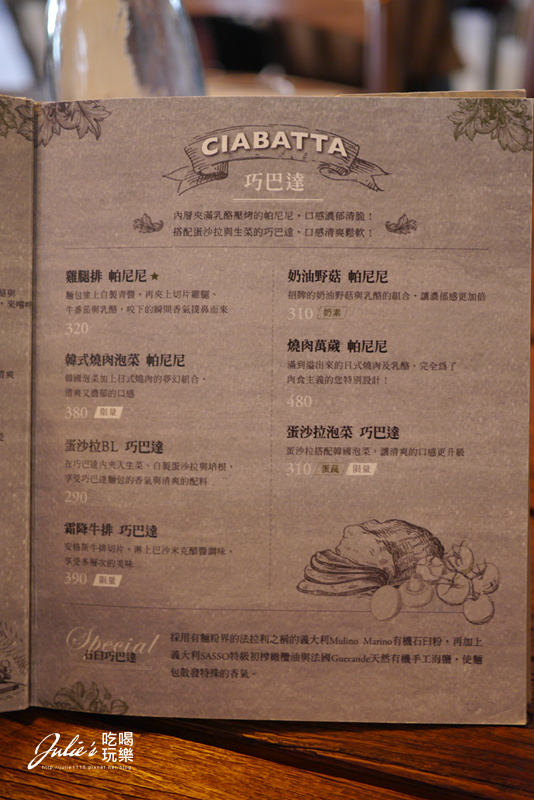 CIABATTA
巧巴達
內層夾滿乳酪壓烤的帕尼尼，口感濃郁清脆！
搭配蛋沙拉與生菜的巧巴達，口感清爽鬆軟！
雞腿排 帕尼尼★
麵包塗上自製青醬，再夾上切片雞腿、
牛番茄與乳酪，咬下的瞬間香氣撲鼻而來
320
韓式燒肉泡菜 帕尼尼
韓國泡菜加上日式燒肉的夢幻組合，
清爽又濃郁的口感
380 限量
蛋沙拉BL 巧巴達
在巧巴達內夾入生菜、自製蛋沙拉與培根，
享受巧巴達麵包的香氣與清爽的配料
290
霜降牛排 巧巴達
安格斯牛排切片，淋上巴沙米克醋醬調味，
享受多層次的美味
390 限量
奶油野菇 帕尼尼
招牌的奶油野菇與乳酪的組合，讓濃郁感更加倍
310 奶素
燒肉萬歲 帕尼尼
滿到溢出來的日式燒肉及乳酪，完全為了
肉食主義的您特別設計！
480
蛋沙拉泡菜 巧巴達
蛋沙拉搭配韓國泡菜，讓清爽的口感更升級
310 蛋蔬 限量
Special
石臼巧巴達
採用有麵粉界的法拉利之稱的義大利Mulino Marino有機石臼粉，再加上
義大利SASSO特級初榨橄欖油與法國Guerande天然有機手工海鹽，使麵
包散發特殊的香氣。
Julie's 吃喝玩樂